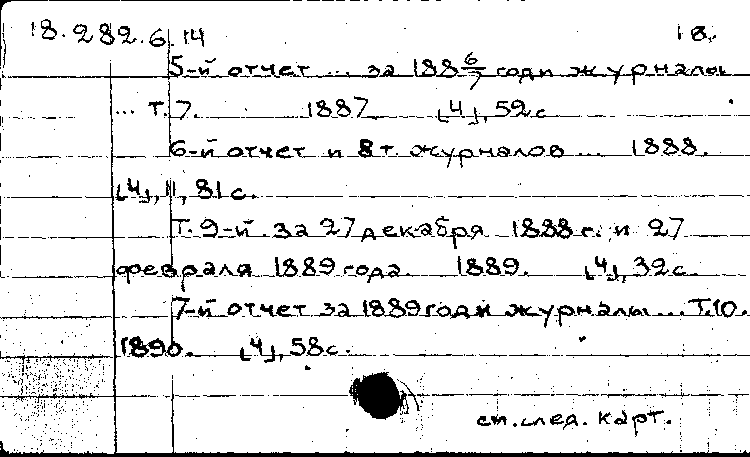 18.282.6.14 18.
5-й отчет ... за 188 6/7 годи журналы
... Т.7. 1887 [4], 59 с
6-й отчет и 8 т. журналов ... 1888.
[4], 11, 81 с.
Т. 9-й за 27 декабря 1888 г. и 27
февраля 1889 года. 1889. [4], 32 с.
7-й отчет за 1889 годи журналы ... Т.10.
1890. [4], 58 с.
см. след. карт.